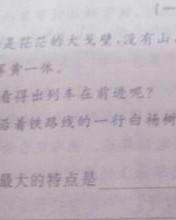 (一
是茫茫的大戈壁，没有山，
浑黄一体。
看得出列车在前进呢？
沿着铁路线的一行白杨树
最大的特点是